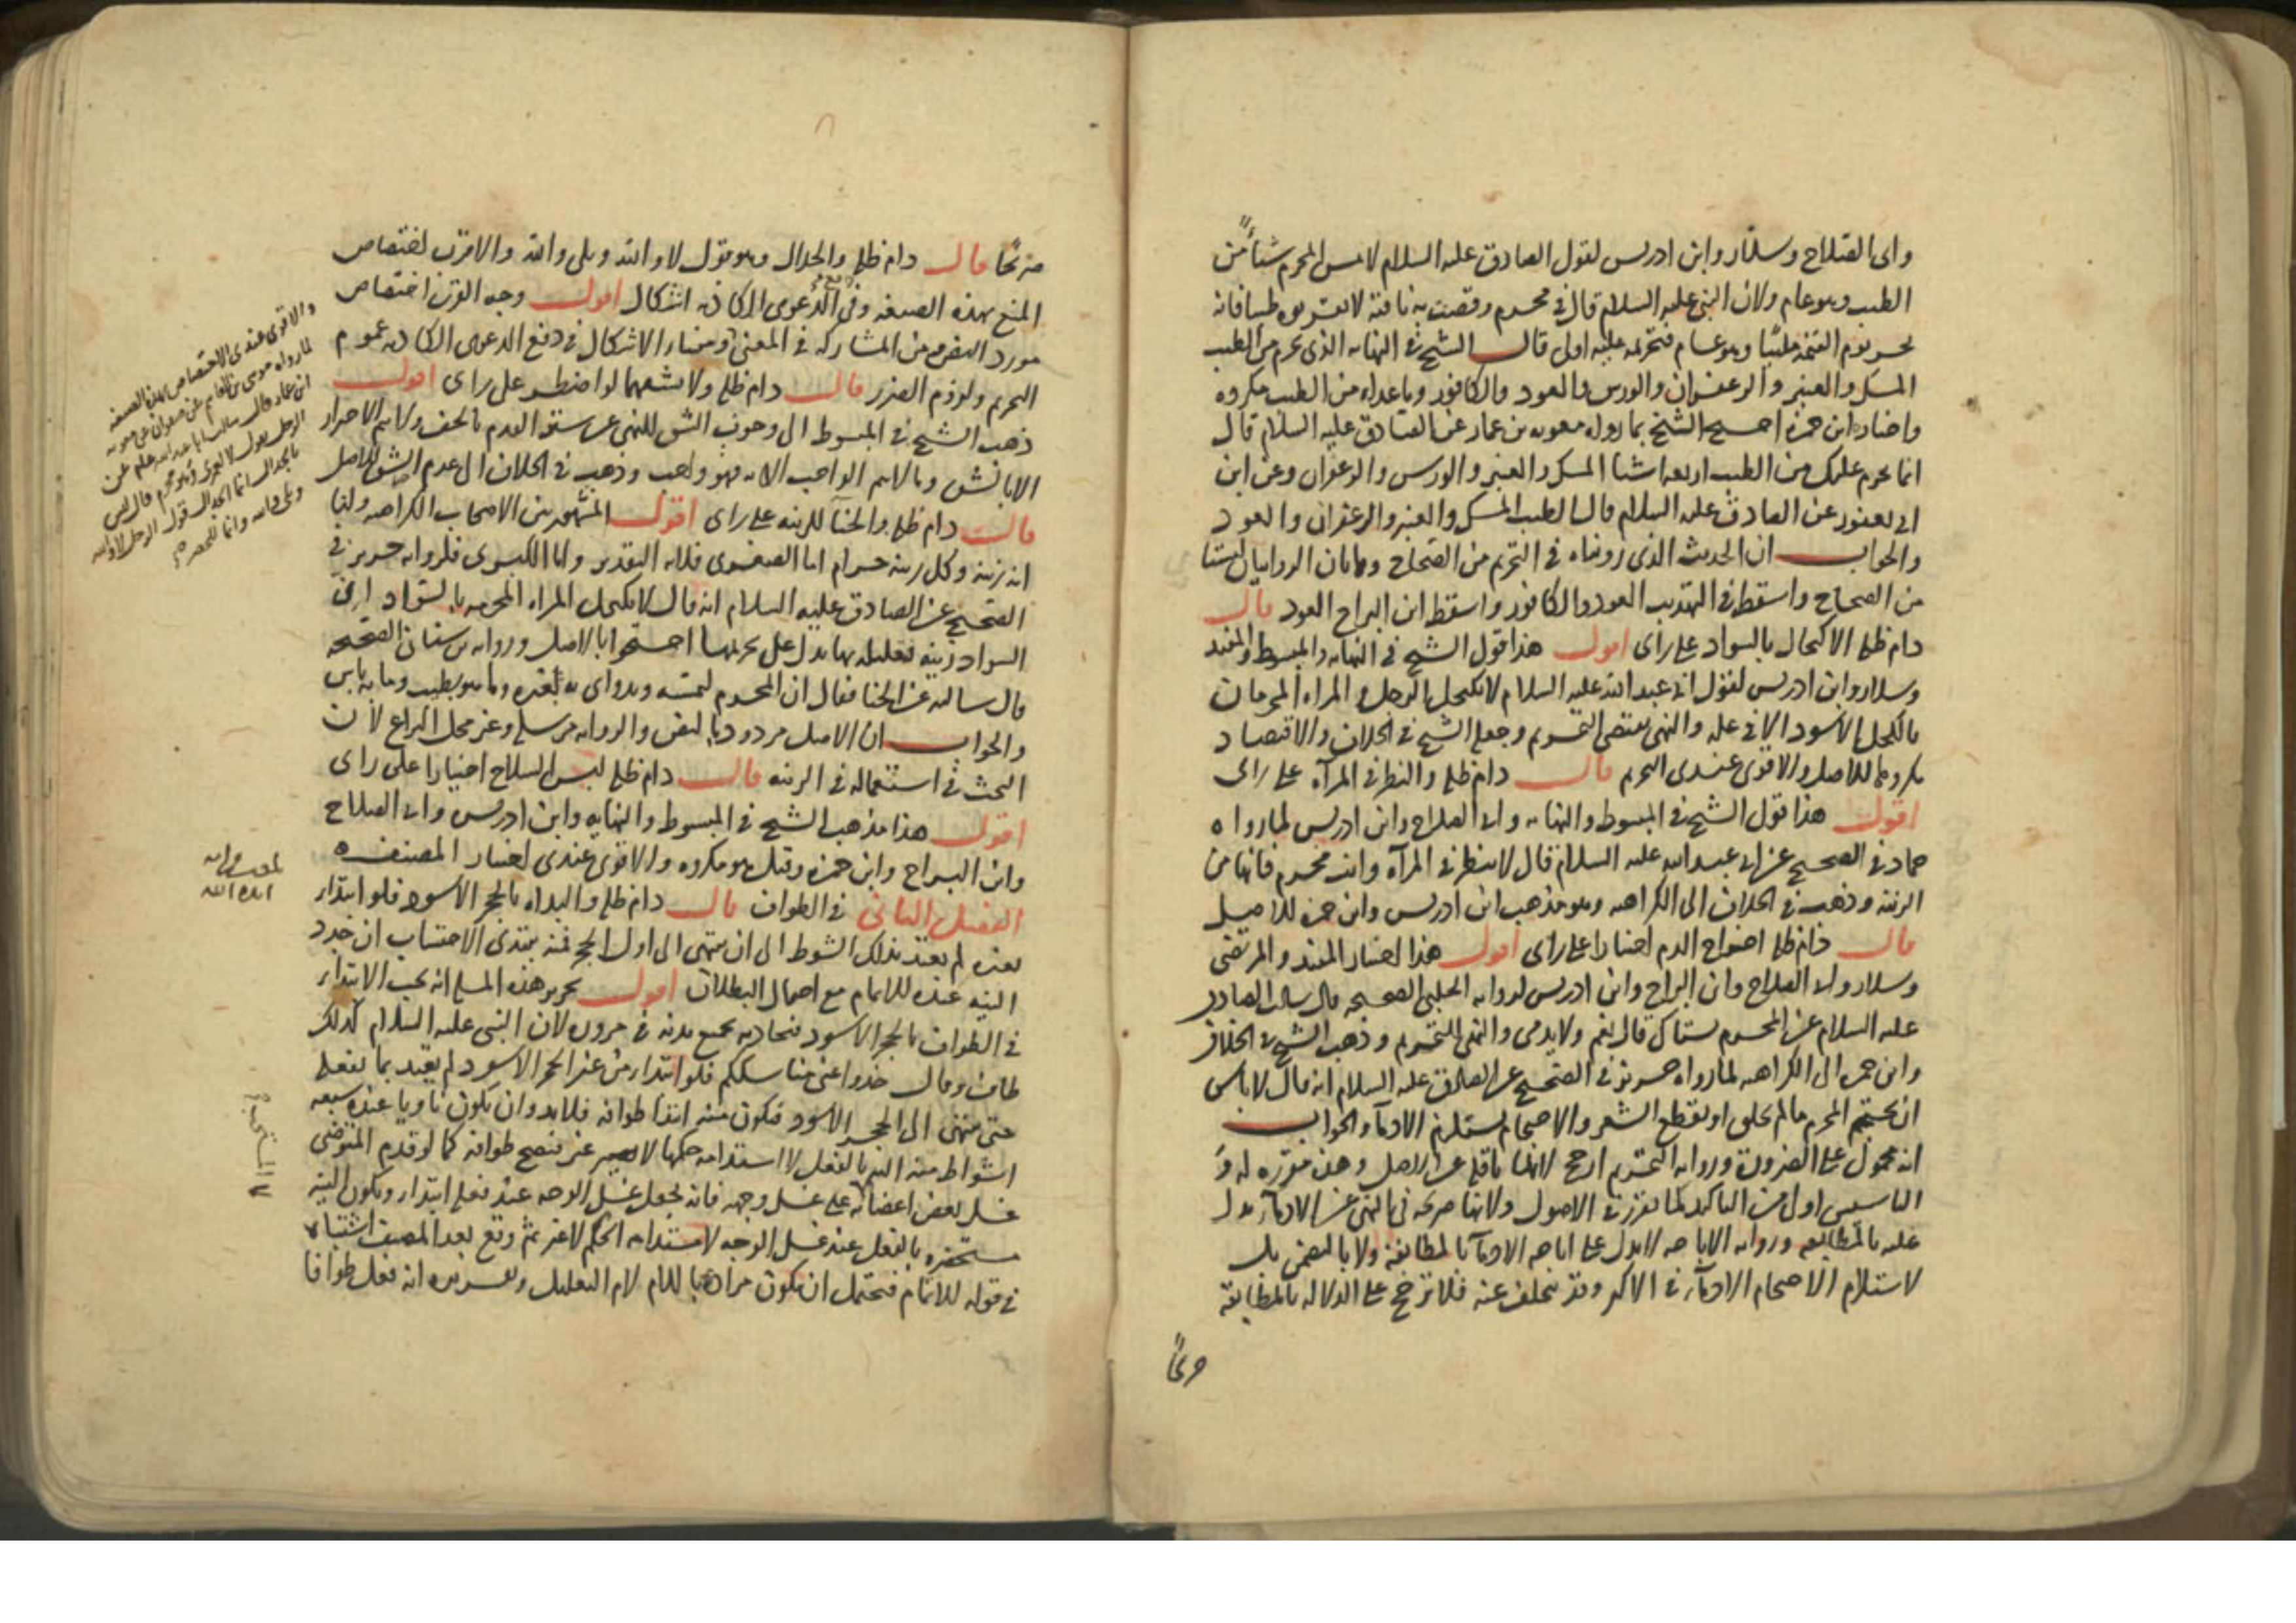 وابى الصلاح وسلار وابن ادريس لقول الصادق عليه السلام لا يمس المحرم شيئا من
الطيب وهو عام ولان النبى عليه السلام قال فى محرم وقصت به ناقته لا تقربوه طيبا فانه
يحشر يوم القيمة ملبيا وهو عام فتحريمه عليه اولى قال الشيخ فى النهايه الذى يحرم من الطيب
المسك والعنبر والزعفران والورس والعود والكافور وما عداه من الطيب مكروه
واختاره ابن حمزه احتج الشيخ بما رواه معويه بن عمار عن الصادق عليه السلام قال
انما يحرم عليك من الطيب اربعه اشيا المسك والعنبر والورس والزعفران وعن ابن
ابى يعفور عن الصادق عليه السلام قال الطيب المسك والعنبر والزعفران والعود
والجواب ان الحديث الذى رويناه فى التحريم من الصحاح وهاتان الروايتان ليستا
من الصحاح واسقط فى التهذيب العود والكافور واسقط ابن البراج العود قال
دام ظله الاكتحال بالسواد على راى اقول هذا قول الشيخ فى النهايه والمبسوط والمفيد
وسلار وابن ادريس لقول ابى عبد الله عليه السلام لا يكتحل الرجل والمراه المحرمان
بالكحل الاسود الا فى عله والنهى يقتضى التحريم وجعله الشيخ فى الخلاف والاقتصاد
مكروها للاصل والاقوى عندى التحريم قال دام ظله والنظر فى المرآه على راى
اقول هذا قول الشيخ فى المبسوط والنهايه وابى الصلاح وابن ادريس لما رواه
حماد فى الصحيح عن ابى عبد الله عليه السلام قال لا ينظر فى المرآه وانت محرم فانها من
الزينة وذهب فى الخلاف الى الكراهه وهو مذهب ابن ادريس وابن حمزه للاصل
قال دام ظله اخراج الدم اختيارا على راى اقول هذا اختيار المفيد والمرتضى
وسلار وابى الصلاح وابن البراج وابن ادريس لروايه الحلبى الصحيحه قال سالت الصادق
عليه السلام عن المحرم يستاك قال نعم ولا يدمى والنهى للتحريم وذهب الشيخ فى الخلاف
وابن حمزه الى الكراهه لما رواه حريز فى الصحيح عن الصادق عليه السلام انه قال لا باس
ان يحتجم المحرم ما لم يحلق او يقطع الشعر والاحتجام يستلزم الادماء والجواب
انه محمول على الضرورة وروايه التحريم ارجح لانها ناقله عن الاصل وهذه مقرره له و
التاسيس اولى من التاكيد لما تقرر فى الاصول ولانها صريحه فى النهى عن الادماء يدل
عليه بالمطابقه وروايه الاباحه لا يدل على اباحه الادماء بالمطابقه ولا بالتضمن بل
لاستلزام الاحتجام الادماء فى الاكثر وقد يتخلف عنه فلا ترجح على الدلاله بالمطابقة
صريحا
صريحا قال دام ظله والجدال وهو قول لا والله وبلى والله والاقرب اختصاص
المنع بهذه الصيغه وفى دفع الدعوى الكاذبه اشكال اقول وجه القرب اختصاص
مورد النص ومن المشاركه فى المعنى ومنشاء الاشكال فى دفع الدعوى الكاذبه عموم
التحريم ولزوم الضرر قال دام ظله ولا يشقهما لو اضطر على راى اقول
ذهب الشيخ فى المبسوط الى وجوب الشق للنهى عن ستر القدم بالخف ولا يتم الاحتراز
الا بالشق وما لا يتم الواجب الا به فهو واجب وذهب فى الخلاف الى عدم الشق للاصل
قال دام ظله والحنآ للزينه على راى اقول المشهور بين الاصحاب الكراهه ولنا
انه زينه وكل زينه حرام اما الصغرى فلانه التقدير واما الكبرى فلروايه حريز فى
الصحيح عن الصادق عليه السلام انه قال لا تكتحل المراه المحرمه بالسواد ان
السواد زينه فتعليله بها يدل على تحريمها احتجوا بالاصل وروايه بن سنان الصحيحه
قال سالته عن الحنا فقال ان المحرم ليمسه ويداوى به بعيره وما هو بطيب وما به باس
والجواب ان الاصل مردود بالنص والروايه مرسله وعن محل النزاع لان
البحث فى استعماله فى الزينه قال دام ظله لبس السلاح اختيارا على راى
اقول هذا مذهب الشيخ فى المبسوط والنهايه وابن ادريس وابى الصلاح
وابن البراج وابن حمزه وقيل هو مكروه والاقوى عندى اختيار المصنف
الفصل الثانى فى الطواف قال دام ظله والبداه بالحجر الاسود فلو ابتداء
بغيره لم يعتد بذلك الشوط الى ان ينتهى الى اول الحجر فمنه يبتدى الاحتساب ان جدد
النيه عنده للاتمام مع احتمال البطلان اقول تحرير هذه المسله انه يجب الابتداء
فى الطواف بالحجر الاسود فيحاذيه بجميع بدنه فى مروره لان النبى عليه السلام كذلك
طاف وقال خذوا عنى مناسككم فلو ابتداء من غير الحجر الاسود لم يعتد بما يفعله
حتى ينتهى الى الحجر الاسود فيكون منه ابتدا طوافه فلا بد وان يكون ناويا عنده سبعه
اشواط منه النيه بالفعل لا استدامه حكمها لا غير فيصح طوافه كما لو قدم المتوضى
غسل بعض اعضائه على غسل وجهه فانه يجعل غسل الوجه عند فعله ابتداء ويكون النيه
مستحضره بالفعل عند غسل الوجه لا مستدام الحكم لا غير ثم وقع بعد المصنف اشتباه
فى قوله للاتمام فيحتمل ان يكون مراده باللام لام التعليل وتقريره انه فعل طوافا
والاقوى عندى الاختصاص بهذه الصيغه
لما رواه موسى بن القاسم عن صفوان عن معويه
ابن عمار قال سالت ابا عبد الله علم عن
الرجل يقول لا لعمرى وهو محرم قال ليس
بالجدال انما الجدال قول الرجل لا والله
وبلى والله
ايده الله